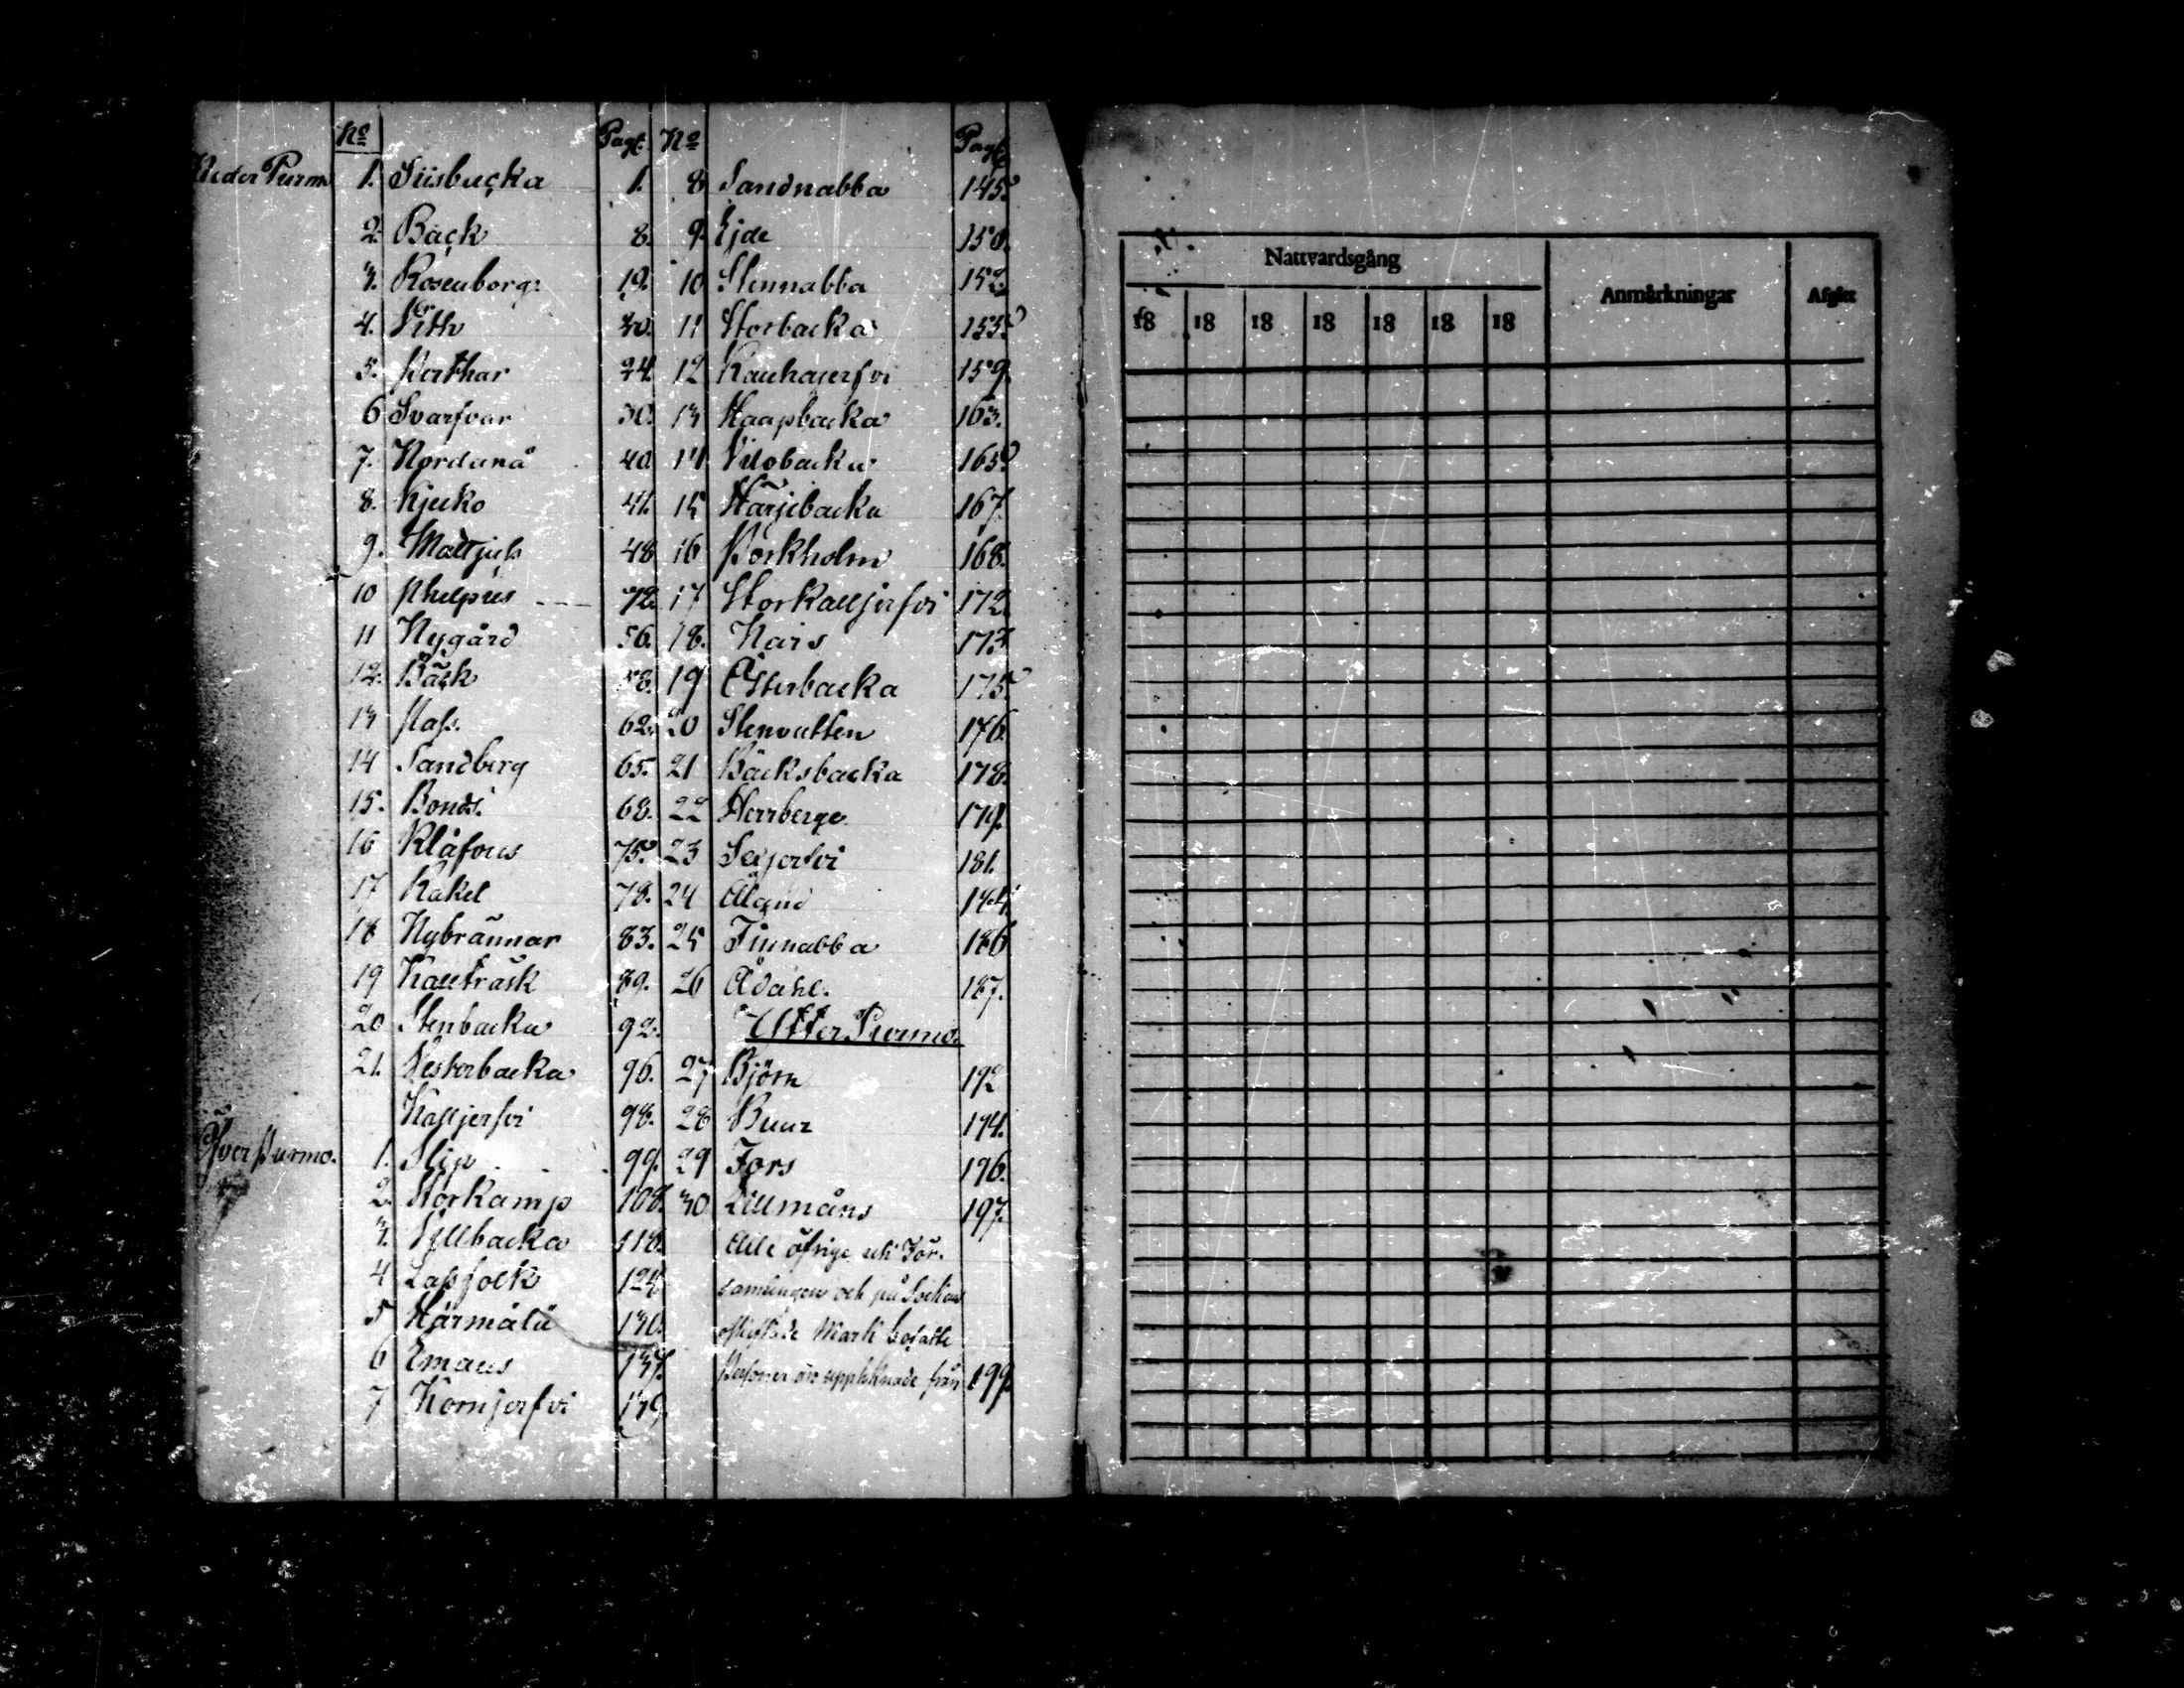 No Pag: No Pag:
Neder Purmo 1. Siisbacka 1. 8 Sandnabba 145.
2. Back 8. 9. Ejde 150.
3. Rosenborg: 19. 10 Stennabba 152.
4. Lith 20. 11 Storbacka 153.
5. Perthar 24. 12 Kauhajerfvi 159.
6 Svarfvar 30. 13 Haapbacka 163.
7. Nordanå 40 14 Vilobacka 165.
8. Kjecko 41. 15 Härjebacka 167.
9. Mattjuss 48 16 Porkholm 168.
10 Philpus 72. 17 Storkalljerfvi 172.
11 Nygård 56. 18. Nars 173
12. Bäck 58. 19 Österbacka 175
13 Mass. 62. 20 Stenvatten 176.
14 Sandberg 65. 21 Bäcksbacka 178.
15. Bonds. 68. 22 Herrberge 179.
16 Klåfvus 75. 23 Seijerfvi 181.
17 Kakel 78. 24 184.
18 Nybrännar 83. 25 Finnabba 186
19 Kallträsk 89. 26 Ådahl. 187.
20 Stenbacka 92. Ytter Purmo.
21. Vesterbacka 96. 27 Björn 192
Kalljerfvi 98. 28 Buur 194.
Öfver Purmo. 1. Slip 99. 29 Fors 196.
2. Storkamp 108. 30 Lillmåns 197.
3. Lillbacka 118. Alle öfrige uti För-
4 Lapfolk 124. samlingen och på Sockens
5 Härmälä 130. oskiftade Mark bosatte
6 Emaus 137. Personer äro upptecknade från 199.
7 Kornjerfvi 139.
Nattvardsgång Anmärkningar Afgått
18 18 18 18 18 18 18